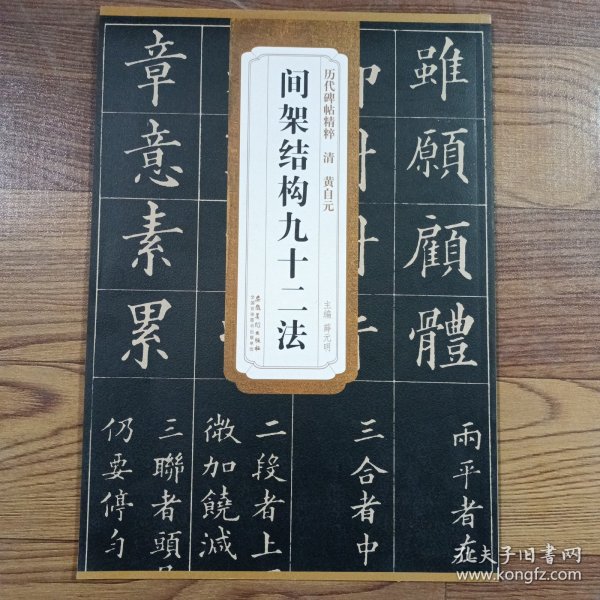 历代碑帖精粹 清 黄自元
间架结构九十二法
主编 薛元明
安徽美术出版社
全国百佳图书出版单位
雖願顧體
章意素累
兩平者
三合者中
二段者上
微加饒減
三聯者頭
仍要停勻
孔夫子旧书网
www.kongfz.com